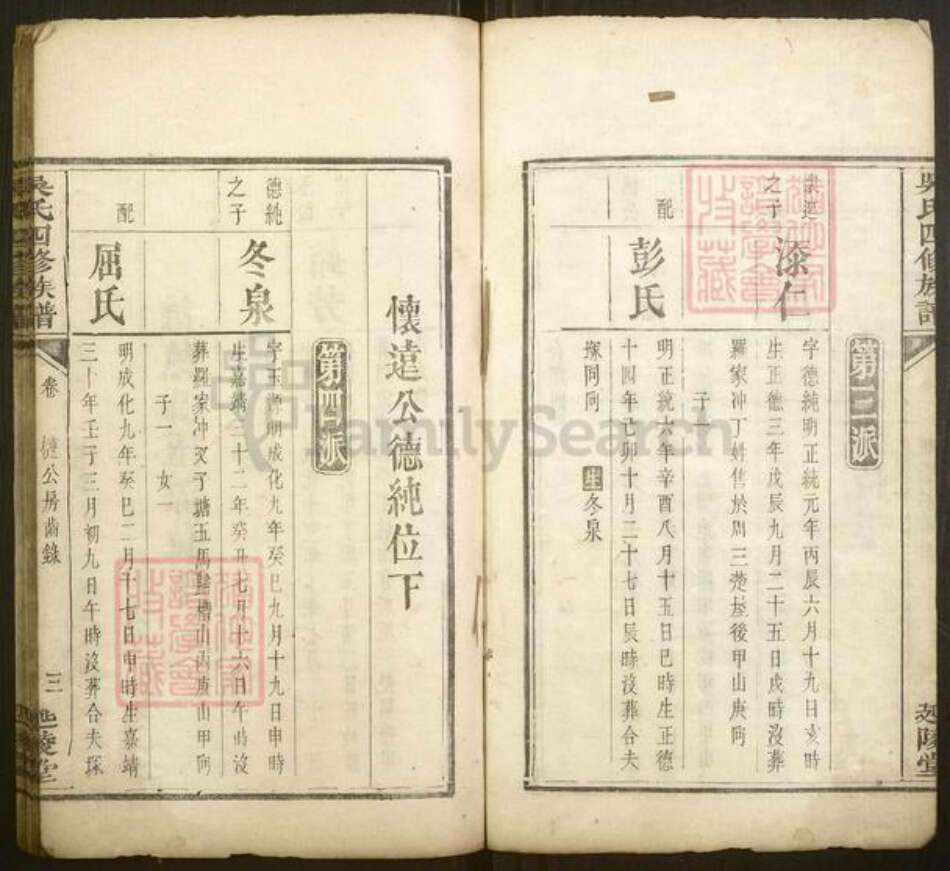 吳氏四修族譜
延陵堂
第三派
之子
深仁
字德純明正統元年丙辰六月十九日亥時
生正德三年戊辰九月二十五日戌時沒葬
羅家冲丁姓售於周三楚屋後甲山庚向
子一
配
彭氏
明正統六年辛酉八月十五日巳時生正德
十四年己卯十月二十七日辰時沒葬合夫
塚同向
生冬泉
懷遠公德純位下
第四派
德純
之子
冬泉
字玉源明成化九年癸巳九月十九日申時
生嘉靖三十二年癸丑七月十六日午時沒
葬羅家冲塘五馬歸槽山丙庚山甲向
子一 女一
配
屈氏
明成化九年癸巳二月十七日申時生嘉靖
三十年壬子三月初九日午時沒葬合夫塚
吳氏四修族譜
卷
公房齒錄
三
延陵堂
FamilySearch